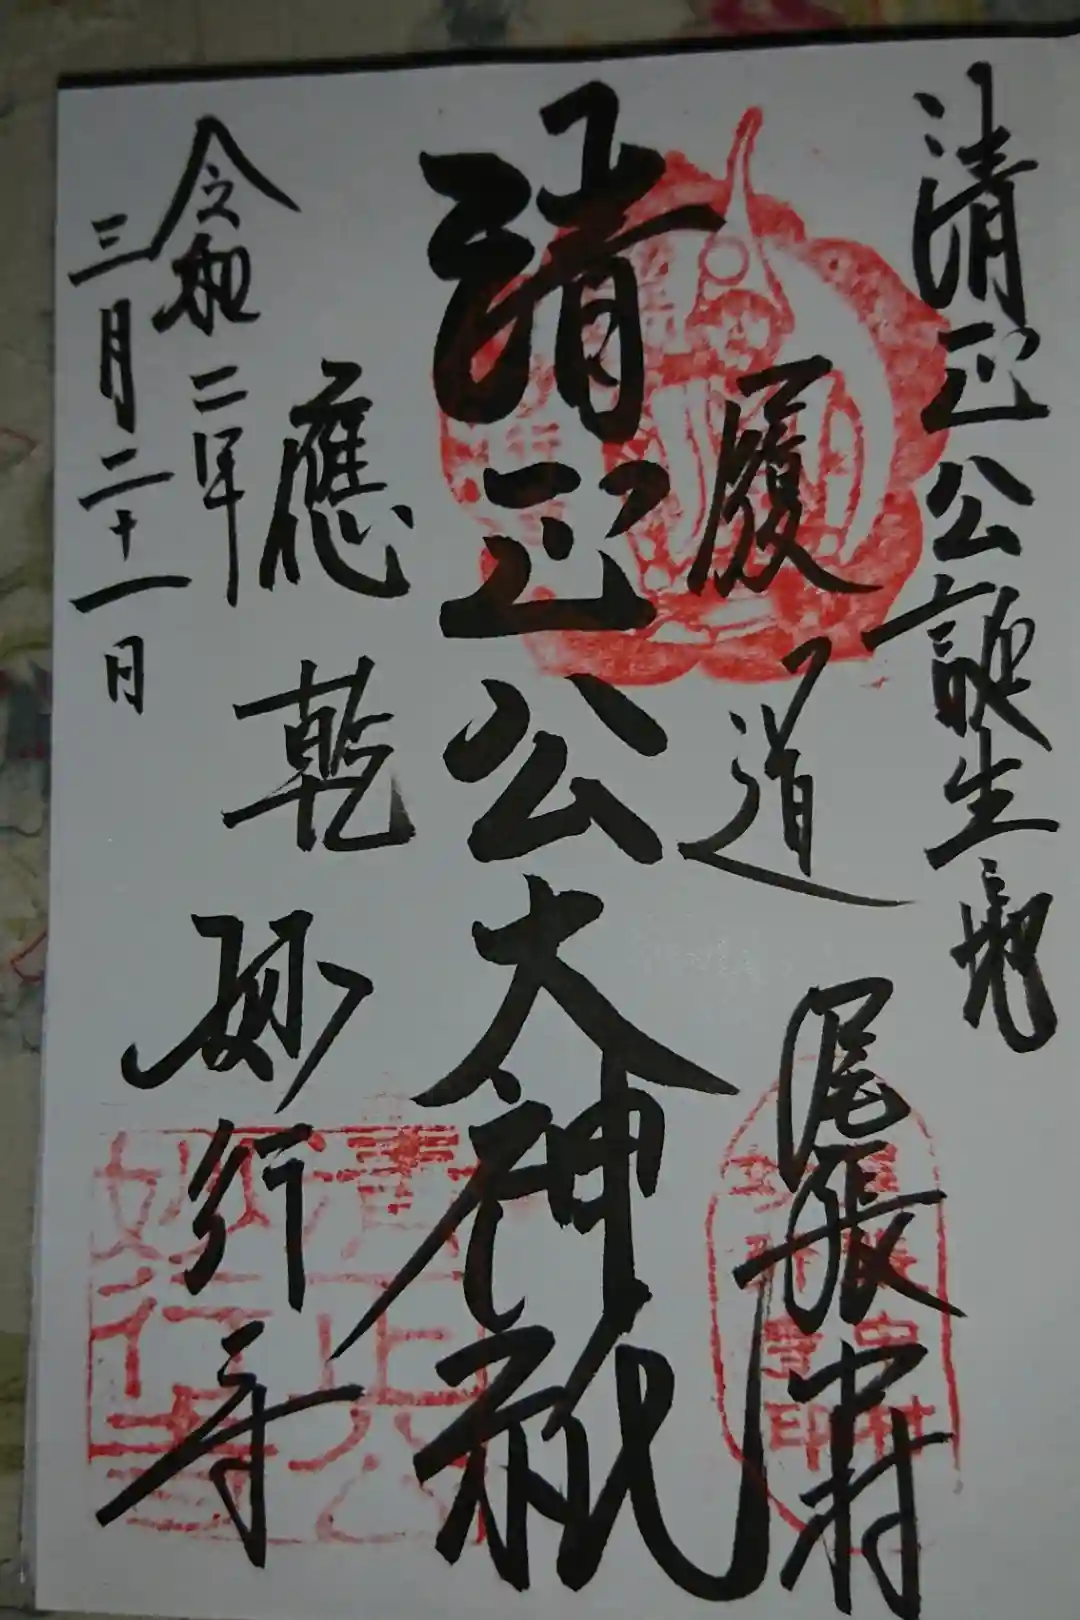 清正公誕生
履道
尾張中村
清正公大神祇
應乾
妙行寺
令和二年
三月二十一日
清正公
妙行寺